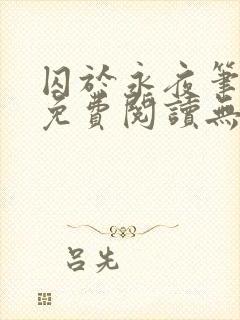 囚於永夜筆
免費閱讀無
呂先